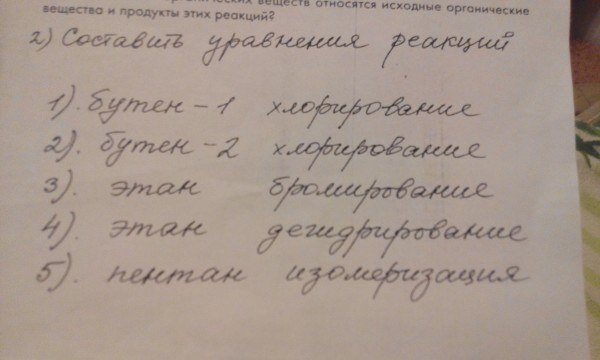 веществ относятся исходные органические
вещества и продукты этих реакций?
2) Составить уравнения реакций
1). бутен-1 хлорирование
2). бутен-2 хлорирование
3). этан бромирование
4). этан дегидрирование
5). пентан изомеризация